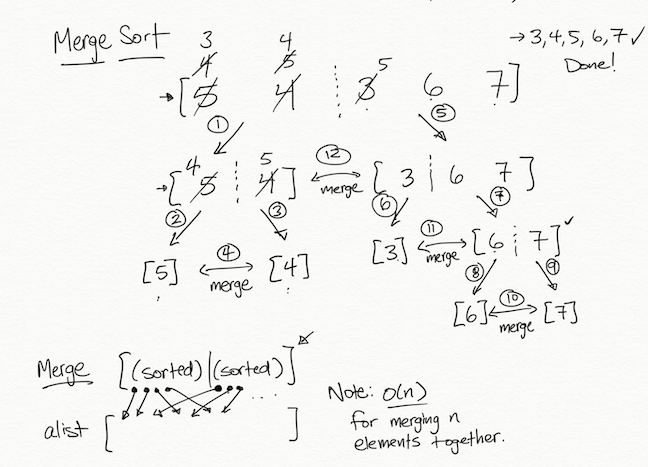 Merge Sort
3 4
4 5 5
[5 4 3 6 7]
→ 3, 4, 5, 6, 7 ✓
Done!
① ⑤
4 5
[5 4] ⑫ merge [3 6 7]
② ③ ⑥ ⑦
[5] ④ merge [4]
[3] ⑪ merge [6 7] ✓
⑧ ⑨
[6] ⑩ merge [7]
Merge [(sorted)|(sorted)]
alist [ ]
Note: O(n)
for merging n
elements together.